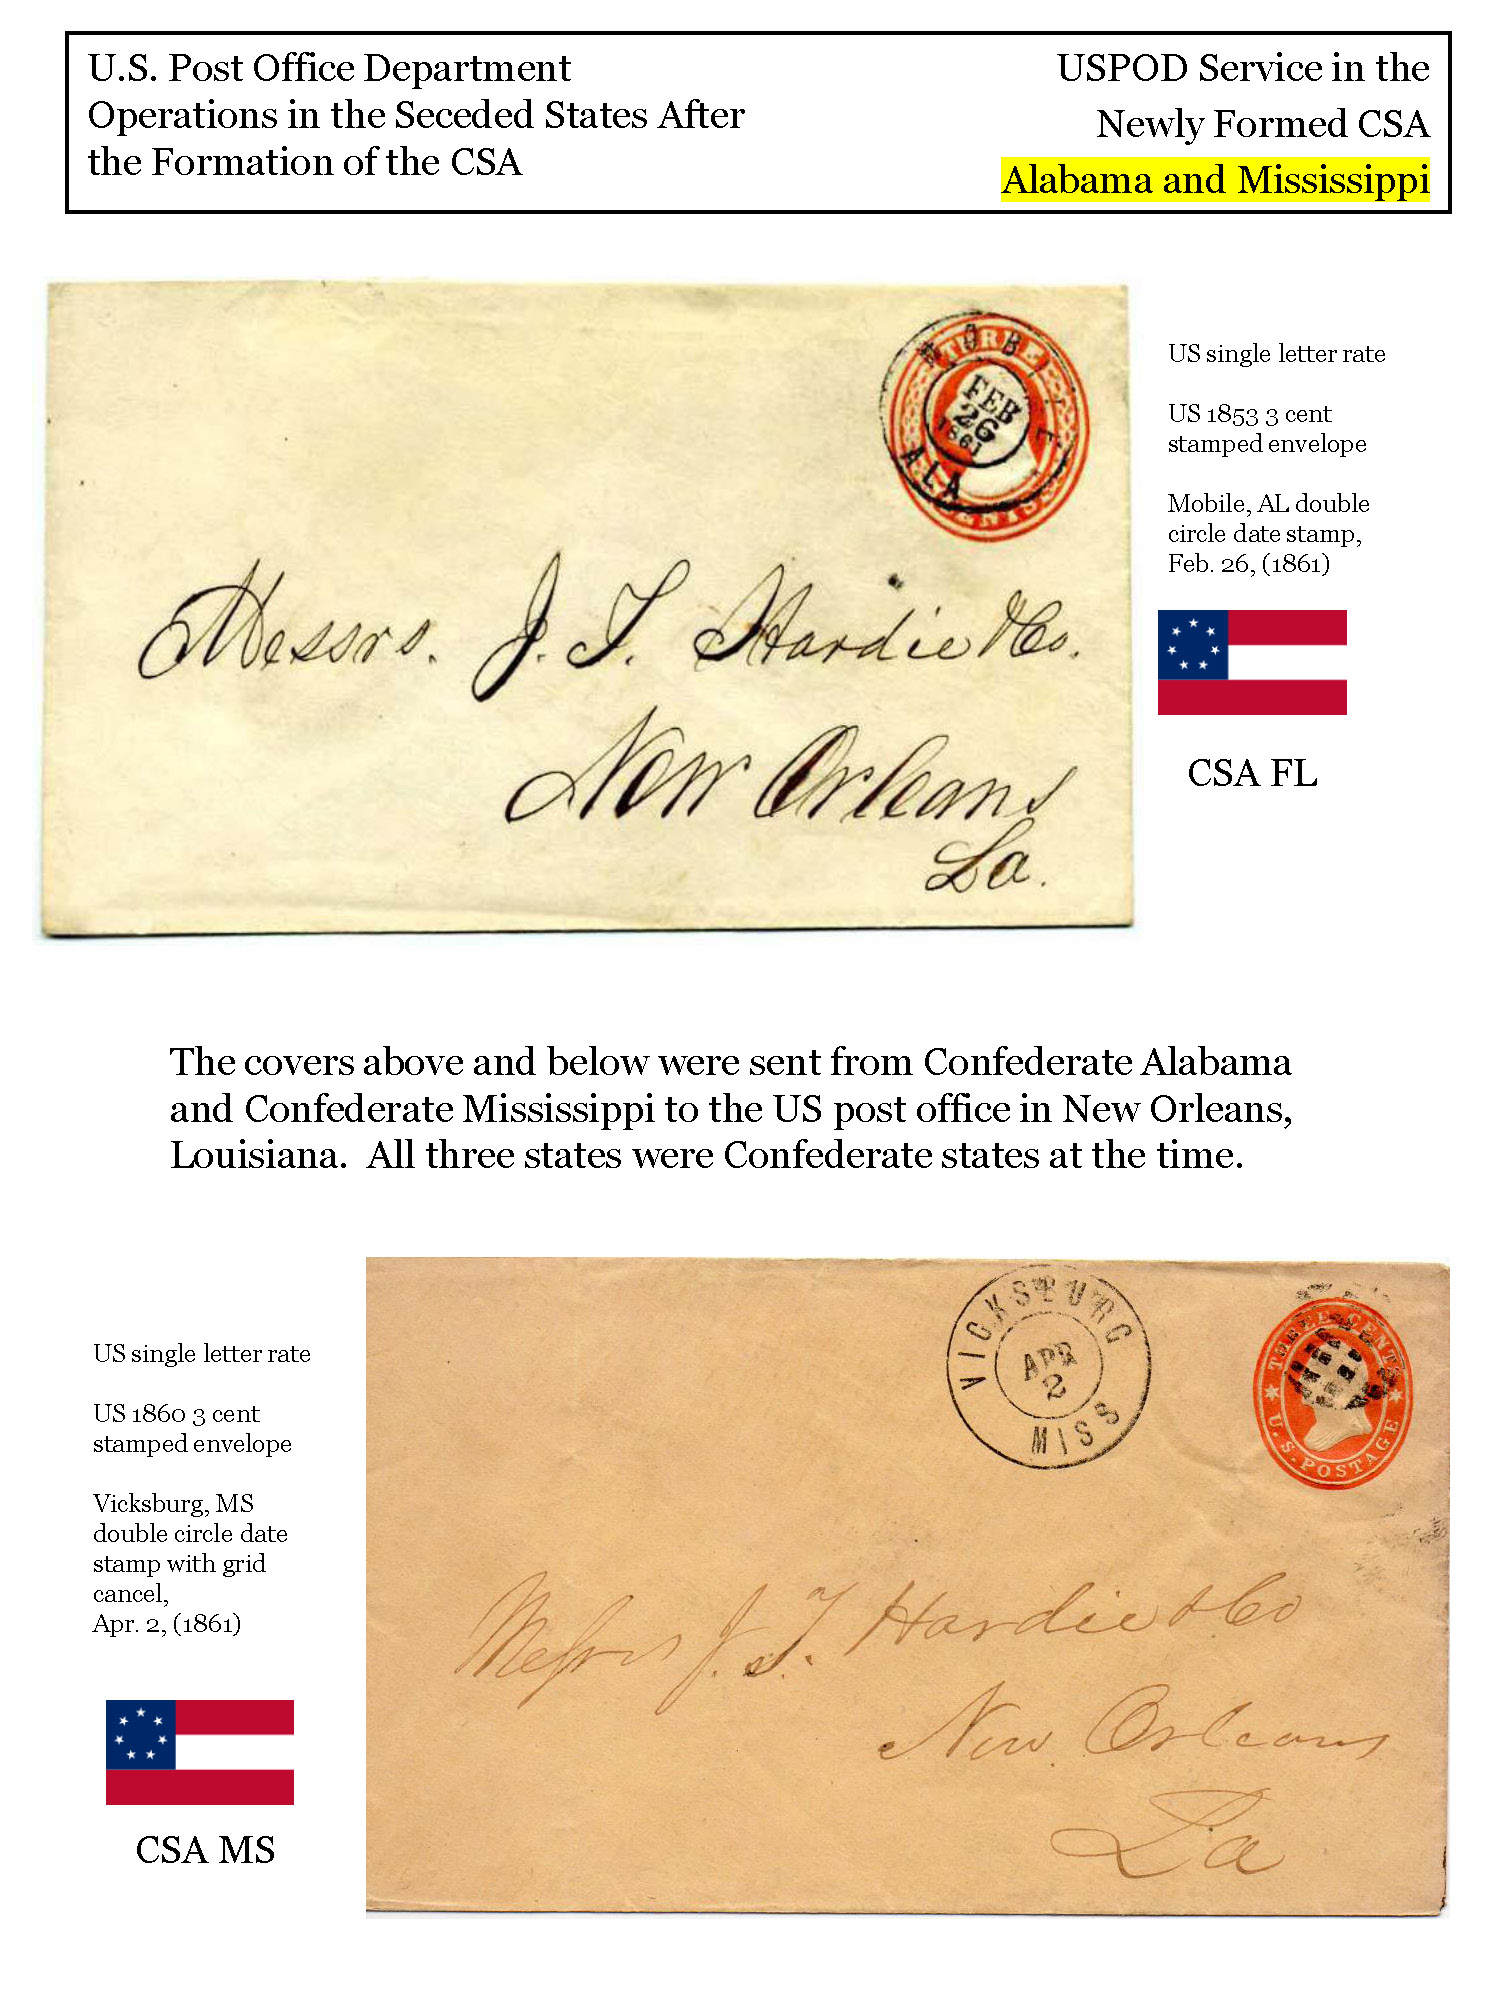 U.S. Post Office Department
Operations in the Seceded States After
the Formation of the CSA
USPOD Service in the
Newly Formed CSA
Alabama and Mississippi
MOBILE
FEB
26
1861
ALA
THREE
CENTS
US single letter rate
US 1853 3 cent
stamped envelope
Mobile, AL double
circle date stamp,
Feb. 26, (1861)
Messrs. J. T. Hardie & Co.
New Orleans
La.
CSA FL
The covers above and below were sent from Confederate Alabama
and Confederate Mississippi to the US post office in New Orleans,
Louisiana. All three states were Confederate states at the time.
US single letter rate
US 1860 3 cent
stamped envelope
Vicksburg, MS
double circle date
stamp with grid
cancel,
Apr. 2, (1861)
CSA MS
VICKSBURG
APR
2
MISS
THREE CENTS
U.S. POSTAGE
Messrs J. T. Hardie & Co
New Orleans
La